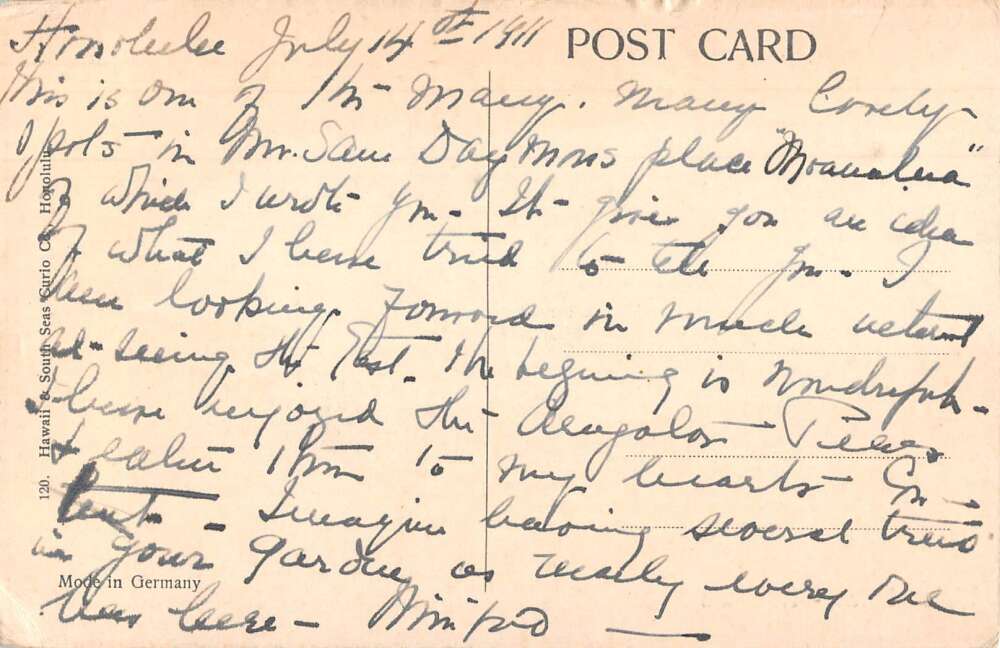 Honolulu July 14th 1911
POST CARD
This is one of the many. many lovely
spots in Mr. Sam Daymons place "Moanalua"
of which I wrote you - It give you an idea
of what I have tried to tell you - I
been looking forward in much interest
at seeing the East. The begining is wonderful -
I have enjoyed the Pears
& eaten them to my hearts con-
tent - Imagine having several trees
in your garden as nearly every one
has here -
120. Hawaii & South Seas Curio Co. Honolulu
Made in Germany